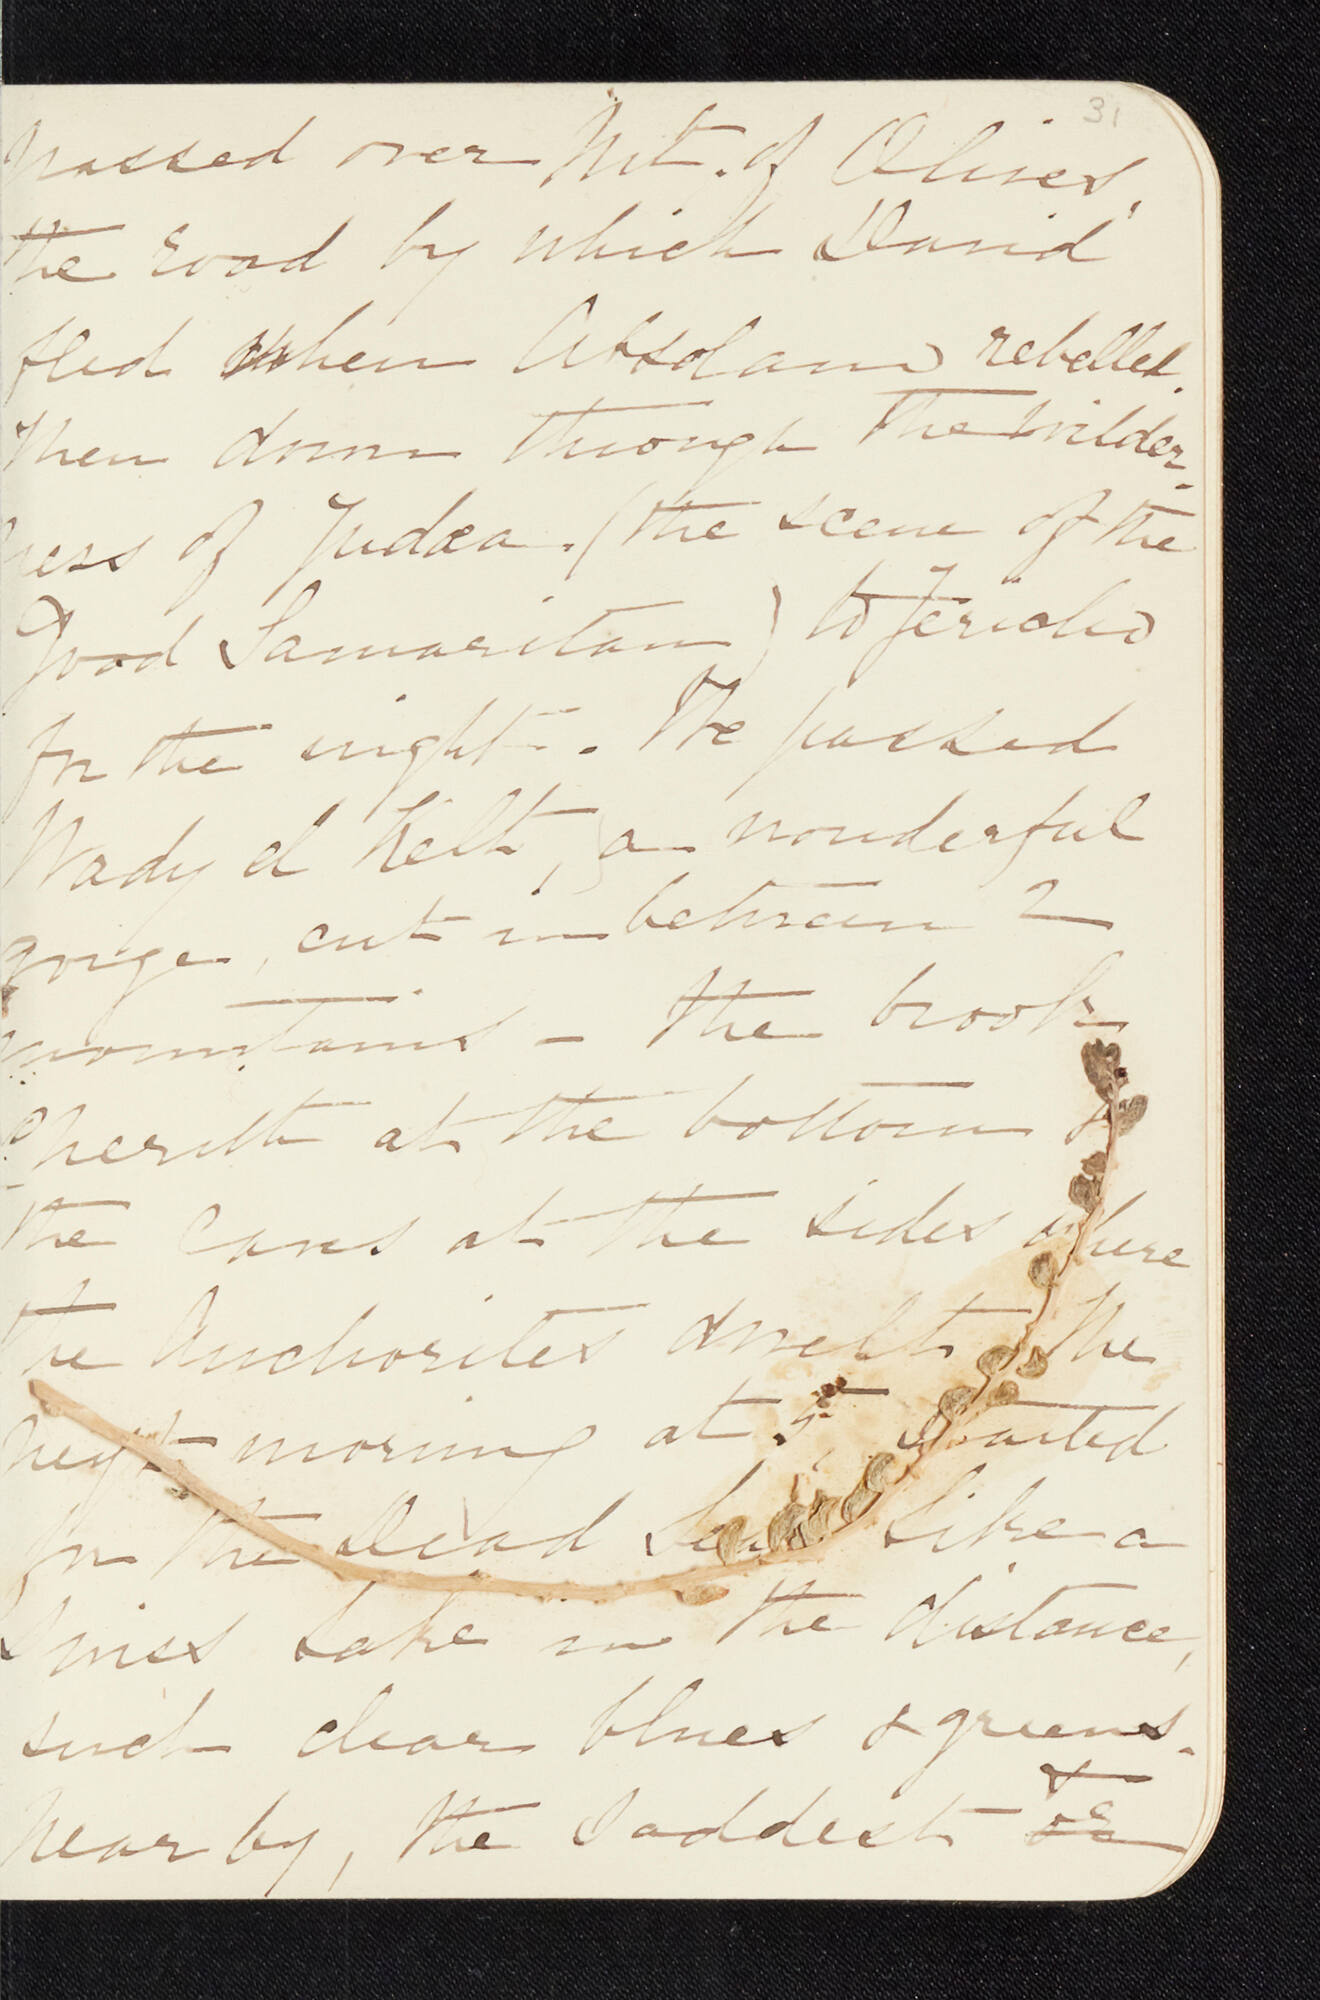 31
passed over Mt. of Olives,
the road by which David
fled when Absolam rebelled.
Then down through the wilder-
ness of Judæa. (the scene of the
Good Samaritan) to Jericho
for the night. We passed
Wady el Kelt, a wonderful
gorge, cut in between 2
mountains - the brook
Cherith at the bottom &
the caves at the sides where
the Anchorites dwelt. The
next morning at 5 started
for the Dead Sea. Like a
Swiss Lake in the distance,
such clear blues & greens.
&
near by, the saddest or